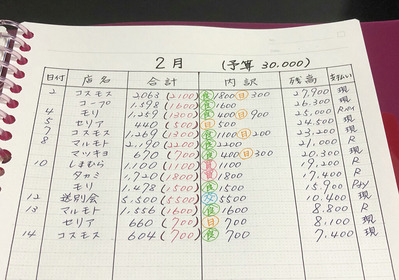 2月 (予算 30.000)
日付 店名 合計 内訳 残高 支払い
2 コスモス 2063 (2100) 食1800 日300 27,900 現
コープ 1.598 (1600) 食1600 26.300 現
4 モリ 1,259 (1300) 食400 日900 25,000 Pay
5 セリア 440 (500) 日500 24,500 現
7 コスモス 1,269 (1300) 食1100 日200 23,200 現
8 マルモト 2,190 (2200) 食2200 21,000 R
マツキョ 670 (700) 食400 日300 20,300 現
10 しまむら 1100 (1100) 1100 19,200 R
タカミ 1,720 (1800) 1800 17,400 R
モリ 1,478 (1500) 食1500 15,900 Pay
12 送別会 5,500 (5500) 交5500 10,400 現
13 マルモト 1,556 (1600) 食1600 8.800 R
セリア 660 (700) 日700 8,100 現
14 コスモス 604 (700) 食700 7,400 現